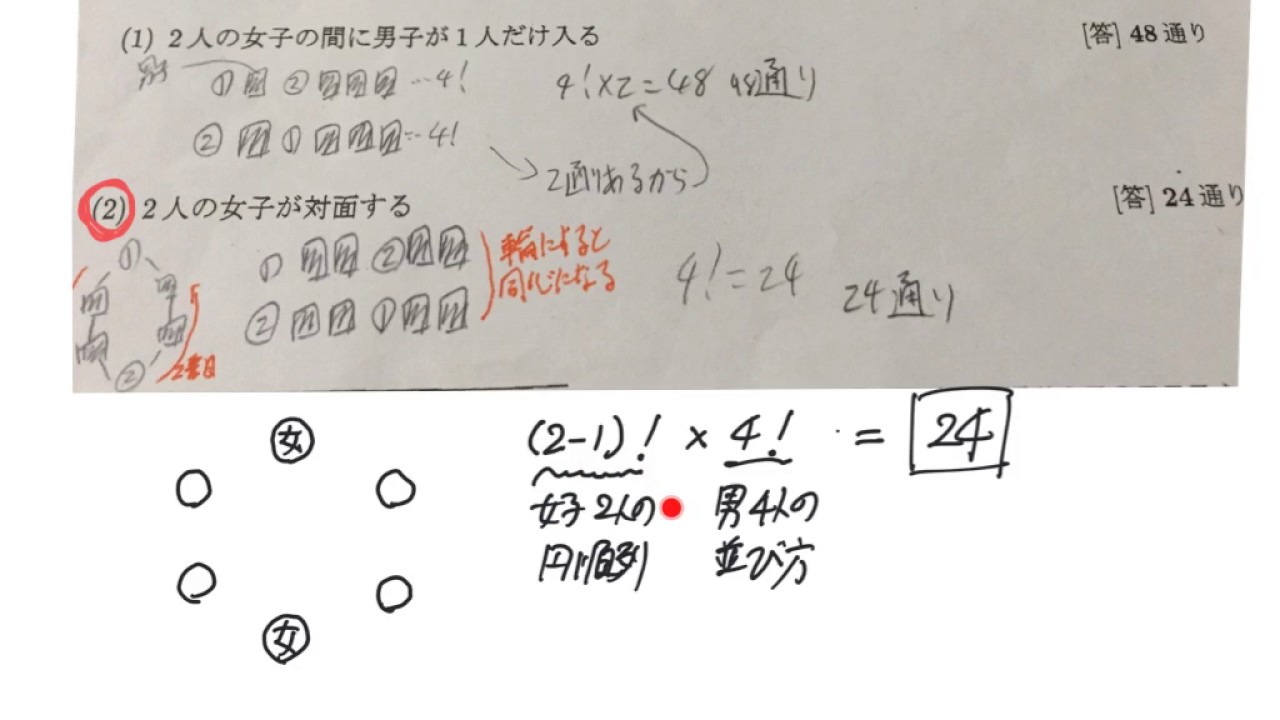 (1) 2人の女子の間に男子が1人だけ入る [答] 48通り
① 男 ② 男男男 …4!
4!×2=48 48通り
② 男 ① 男男男 …4!
2通りあるから
(2) 2人の女子が対面する [答] 24通り
① 男男 ② 男男
輪にすると
同じになる
② 男男 ① 男男
4!=24 24通り
①
男 男
男 男
②
女
(2-1)! × 4! = 24
女子2人の 男4人の
円順列 並び方
女